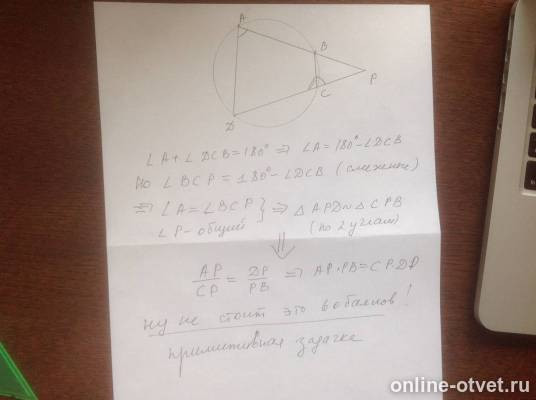 A
B
P
C
D
∠A+∠DCB=180° ⇒ ∠A=180°-∠DCB
Но ∠BCP=180°-∠DCB (смежные)
⇒ ∠A=∠BCP } ⇒ △APD∼△CPB
∠P-общий (по 2 углам)
⇓
AP/CP = DP/PB ⇒ AP·PB=CP·DP
ну не стоит это баллов!
примитивная задачка
online-otvet.ru